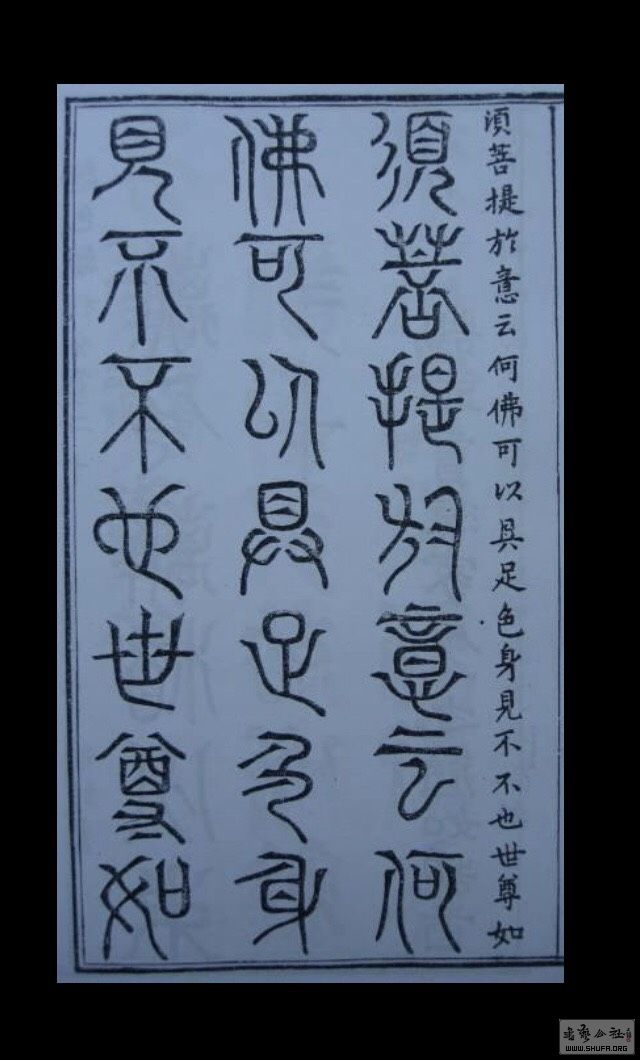 須菩提於意云何佛可以具足色身見不不也世尊如
須菩提於意云何
佛可以具足色身
見不不也世尊如
书艺公社
WWW.SHUFA.ORG